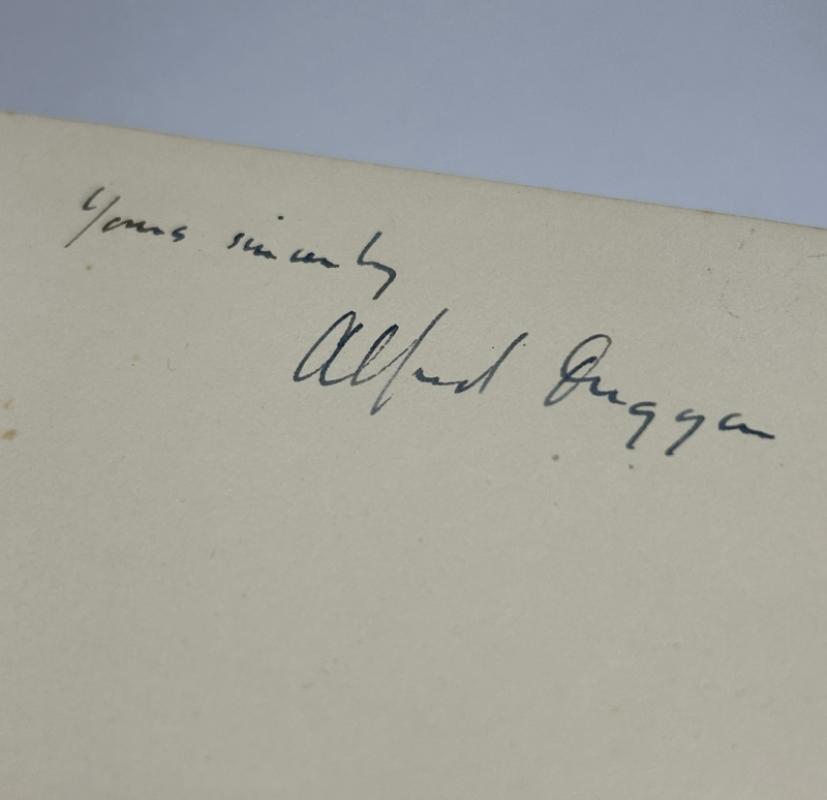 Yours sincerely
Alfred Duggan